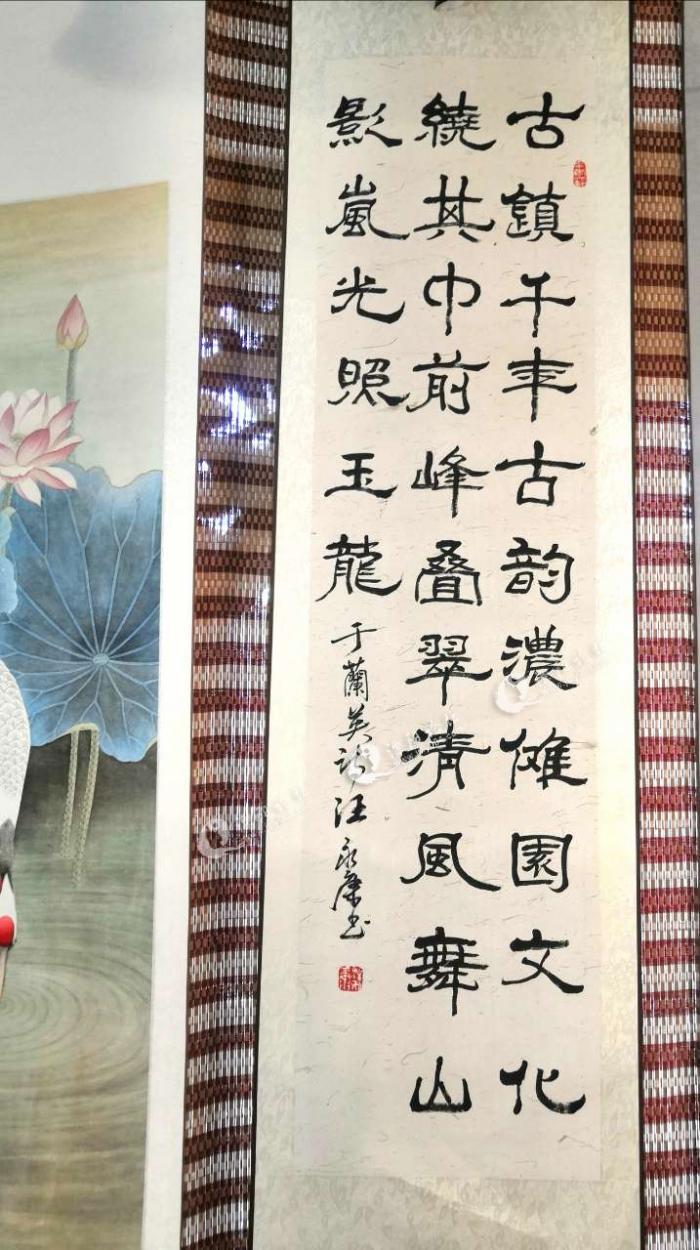 古鎮千年古韵濃傩園文化
繞其中前峰叠翠清风舞山
影嵐光照玉龍
于蘭英诗汪永康书